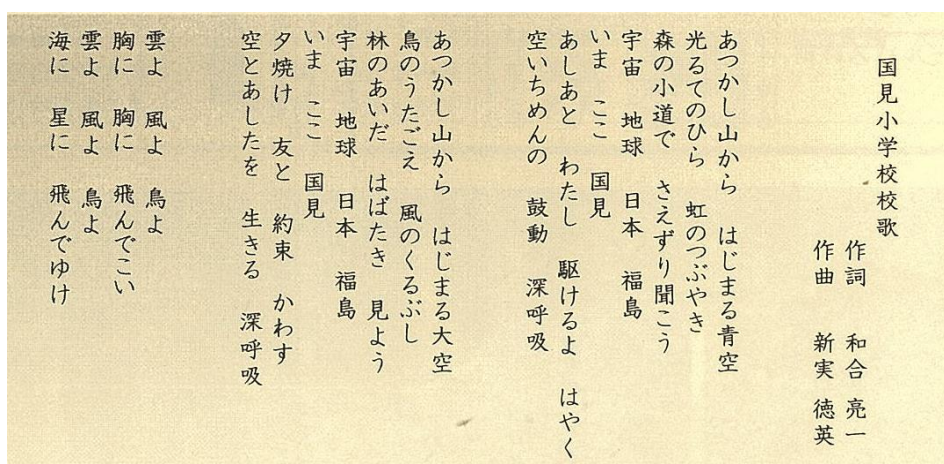 国見小学校校歌
作詞　和合 亮一
作曲　新実 徳英
あつかし山から　はじまる青空
光るてのひら　虹のつぶやき
森の小道で　さえずり聞こう
宇宙　地球　日本　福島
いま　ここ　国見
あしあと　わたし　駆けるよ　はやく
空いちめんの　鼓動　深呼吸
あつかし山から　はじまる大空
鳥のうたごえ　風のくるぶし
林のあいだ　はばたき　見よう
宇宙　地球　日本　福島
いま　ここ　国見
夕焼け　友と　約束　かわす
空とあしたを　生きる　深呼吸
雲よ　風よ　鳥よ
胸に　胸に　飛んでこい
雲よ　風よ　鳥よ
海に　星に　飛んでゆけ